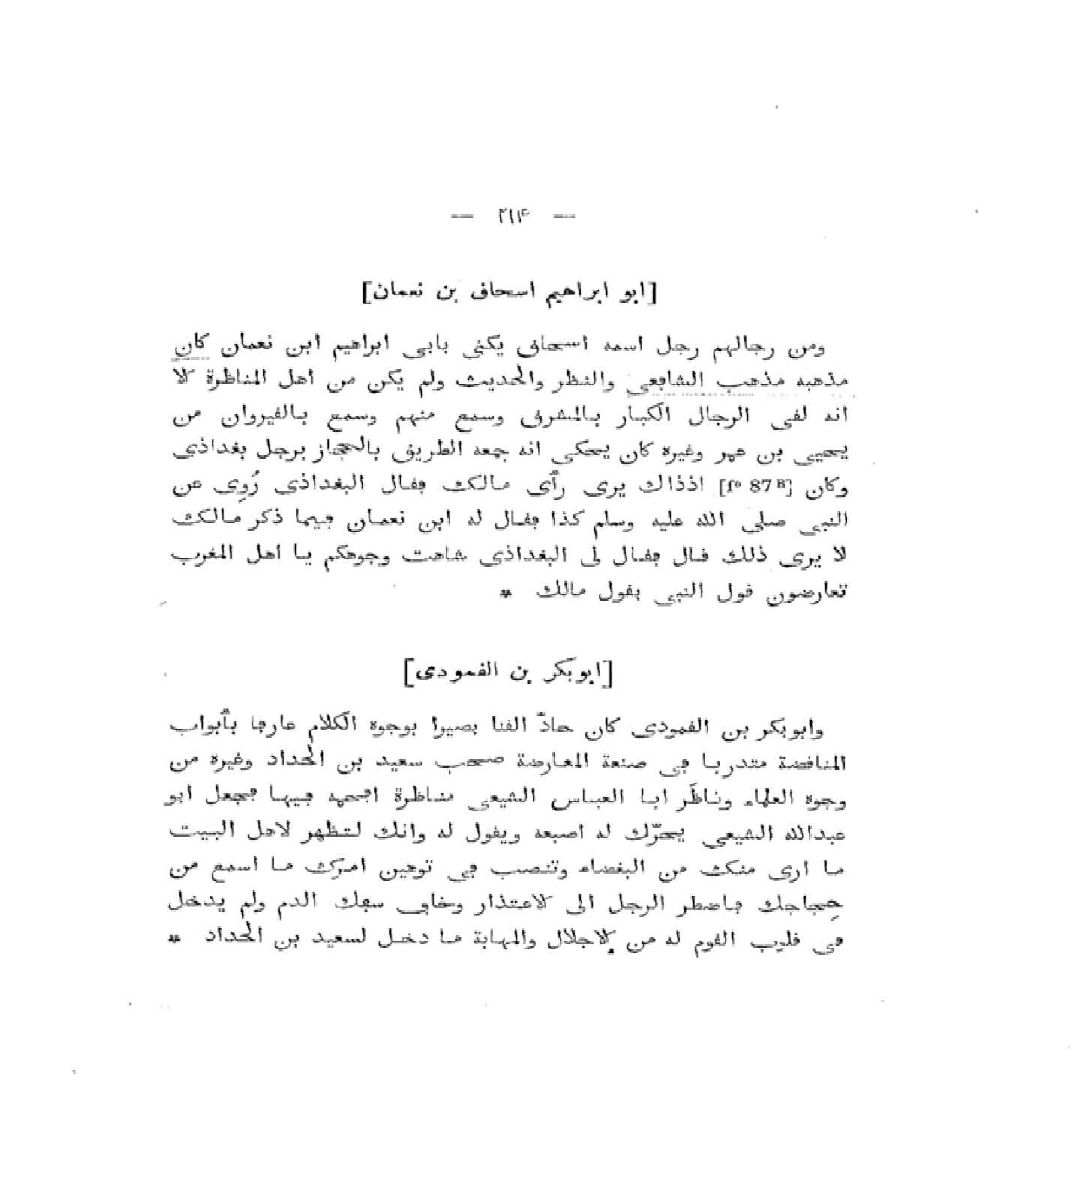 — ٢١٤ —
[ابو ابراهيم اسحاق بن نعمان]
ومن رجالهم رجل اسمه اسحاق يكنى بابى ابراهيم ابن نعمان كان
مذهبه مذهب الشافعي والنظر والحديث ولم يكن من اهل المناظرة الا
انه لقى الرجال الكبار بالمشرق وسمع منهم وسمع بالقيروان من
يحيى بن عمر وغيره كان يحكى انه جمعه الطريق بالحجاز برجل بغداذى
وكان [fº 87 B] اذذاك يرى رأى مالك فقال البغداذى رُوِى عن
النبى صلى الله عليه وسلم كذا فقال له ابن نعمان فيما ذكر مالك
لا يرى ذلك قال فقال لى البغداذى شاهت وجوهكم يا اهل المغرب
تعارضون قول النبى بقول مالك *
[ابوبكر بن القمودى]
وابوبكر بن القمودى كان حادّ القنا بصيرا بوجوه الكلام عارفا بأبواب
المناقضة متدربا فى صنعة المعارضة صحب سعيد بن الحداد وغيره من
وجوه العلماء وناظَر ابا العباس الشيعى مناظرة افحمه فيها فجعل ابو
عبدالله الشيعى يحرّك له اصبعه ويقول له وانك لتظهر لاهل البيت
ما ارى منك من البغضاء وتنصب فى توهين امرك ما اسمع من
حِجاجك فاضطر الرجل الى الاعتذار وخاف سفك الدم ولم يدخل
فى قلوب القوم له من الاجلال والمهابة ما دخل لسعيد بن الحداد *